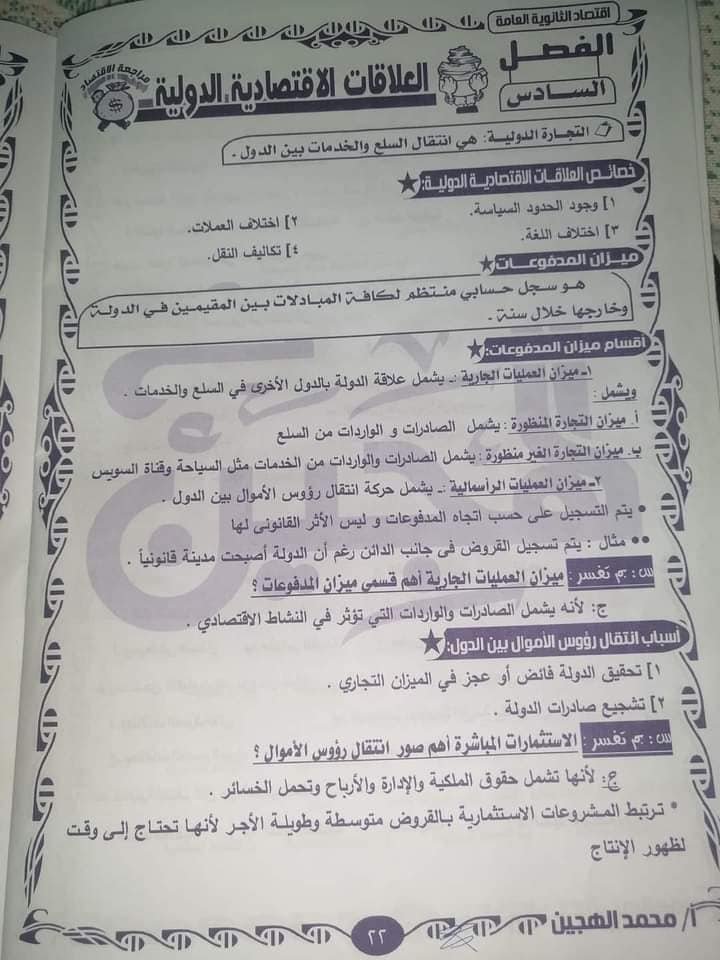 اقتصاد الثانوية العامة
الفصل
السادس
العلاقات الاقتصادية الدولية
مراجعة الاقتصاد
التجارة الدولية: هي انتقال السلع والخدمات بين الدول .
خصائص العلاقات الاقتصادية الدولية:
١] وجود الحدود السياسة.
٢] اختلاف العملات.
٣] اختلاف اللغة.
٤] تكاليف النقل.
ميزان المدفوعات
هو سجل حسابي منتظم لكافة المبادلات بين المقيمين في الدولة
وخارجها خلال سنة .
أقسام ميزان المدفوعات:
١ـ ميزان العمليات الجارية :ـ يشمل علاقة الدولة بالدول الأخرى في السلع والخدمات .
ويشمل :
أ. ميزان التجارة المنظورة : يشمل الصادرات و الواردات من السلع
ب. ميزان التجارة الغير منظورة : يشمل الصادرات والواردات من الخدمات مثل السياحة وقناة السويس
٢ـ ميزان العمليات الرأسمالية :ـ يشمل حركة انتقال رؤوس الأموال بين الدول .
• يتم التسجيل على حسب اتجاه المدفوعات و ليس الأثر القانونى لها
•• مثال : يتم تسجيل القروض فى جانب الدائن رغم أن الدولة أصبحت مدينة قانونياً .
س: بم تفسر : ميزان العمليات الجارية أهم قسمي ميزان المدفوعات ؟
ج: لأنه يشمل الصادرات والواردات التي تؤثر في النشاط الاقتصادي .
أسباب انتقال رؤوس الأموال بين الدول:
١] تحقيق الدولة فائض أو عجز في الميزان التجاري .
٢] تشجيع صادرات الدولة .
س: بم تفسر : الاستثمارات المباشرة أهم صور انتقال رؤوس الأموال ؟
ج: لأنها تشمل حقوق الملكية والإدارة والأرباح وتحمل الخسائر .
* ترتبط المشروعات الاستثمارية بالقروض متوسطة وطويلة الأجر لأنها تحتاج إلى وقت
لظهور الإنتاج
أ/ محمد الهجين
٢٢